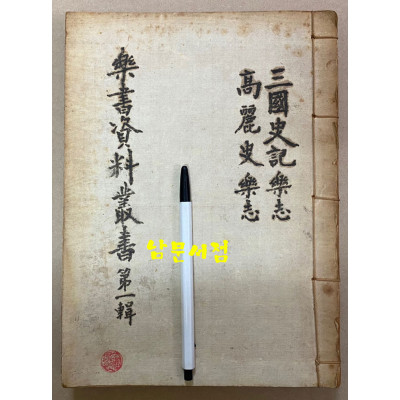 三國史記 樂志
高麗史 樂志
樂書資料叢書 第一輯
남문서점